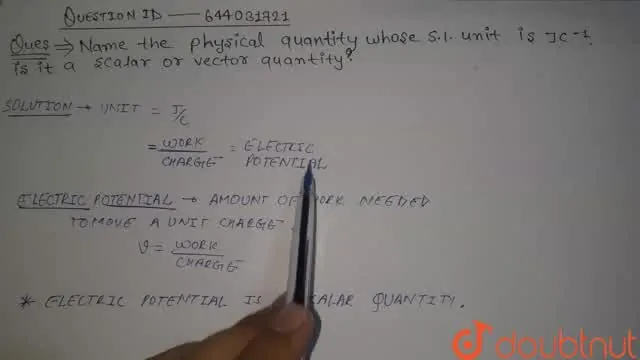 QUESTION ID — 644031721
Ques → Name the physical quantity whose S.I. unit is JC-1.
is it a scalar or vector quantity?
SOLUTION → UNIT = J/C
= WORK/CHARGE = ELECTRIC POTENTIAL
ELECTRIC POTENTIAL → AMOUNT OF WORK NEEDED
TO MOVE A UNIT CHARGE.
V = WORK/CHARGE
* ELECTRIC POTENTIAL IS QUANTITY.
doubtnut